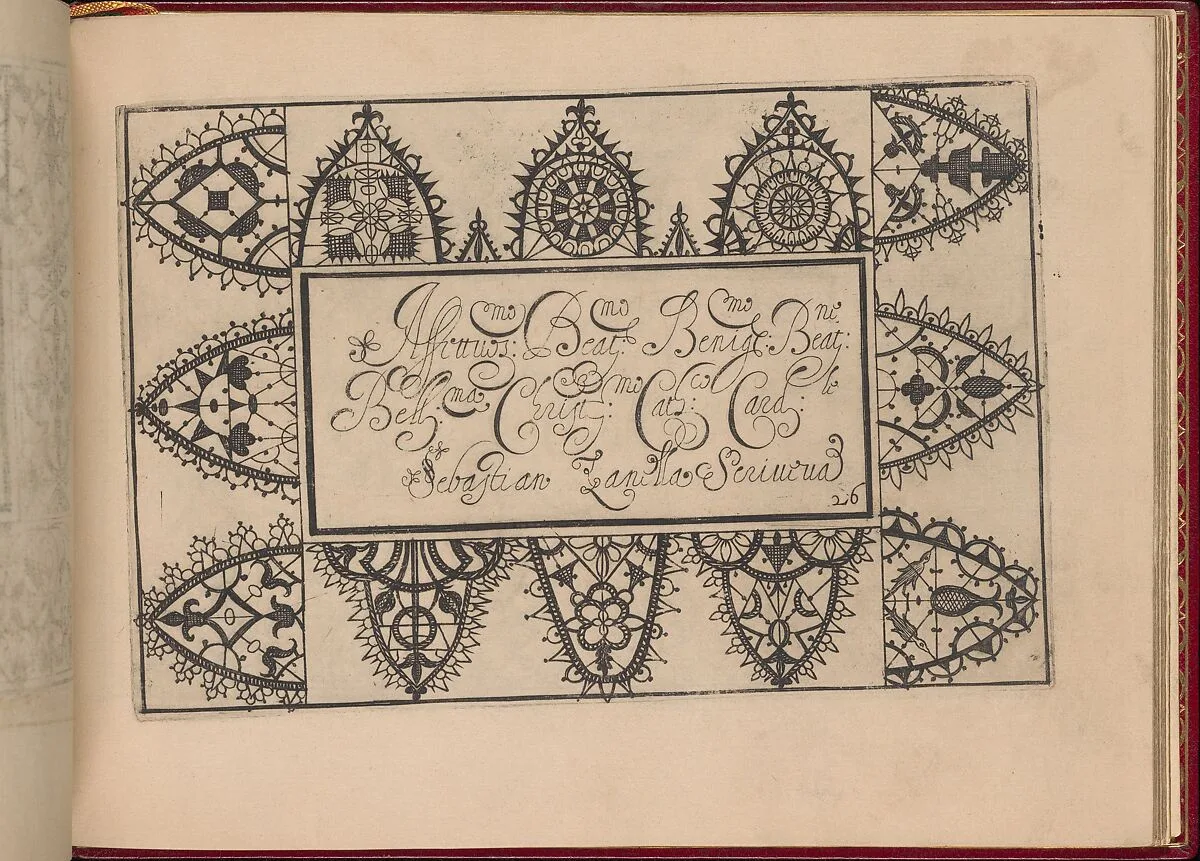 Affittuos: mo Beat: mo Benig: mo Beat: ne
Bell: ma Christ: mo Cath: co Card: le
Sebastian Zanella Scriveva
26